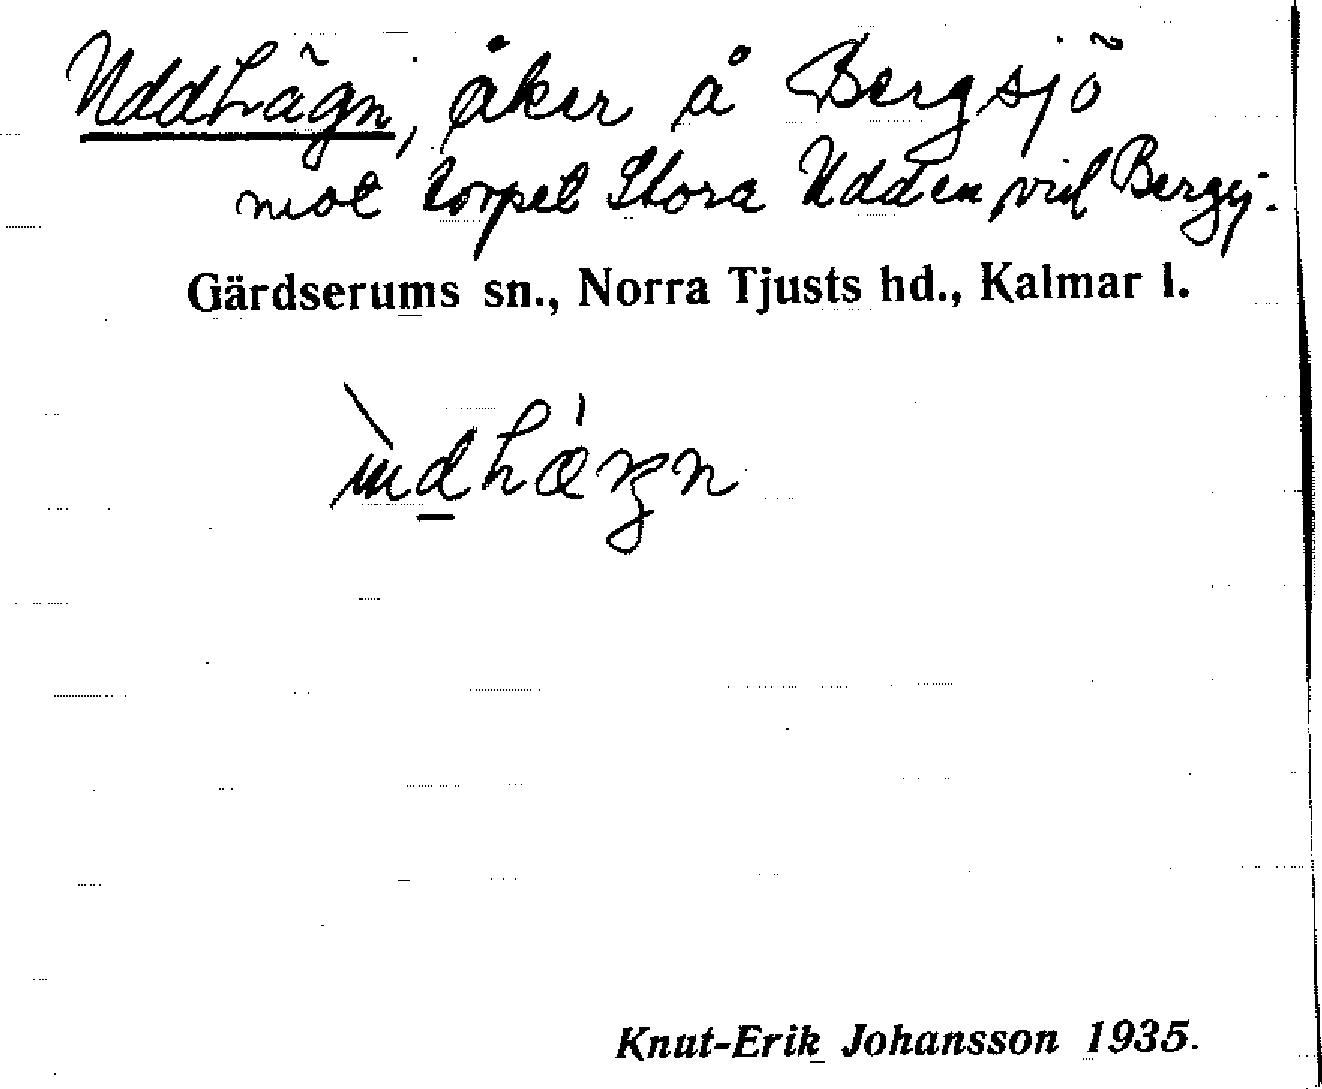 Uddhägn, åker å Bergsjö
mot torpet Stora Udden vid Bergsj.
Gärdserums sn., Norra Tjusts hd., Kalmar l.
Knut-Erik Johansson 1935.